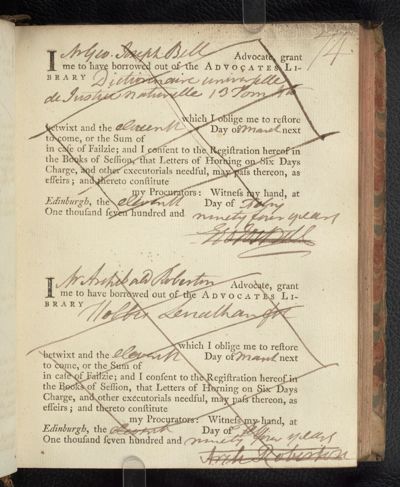 14
I Mr Geo. Joseph Bell Advocate, grant
me to have borrowed out of the ADVOCATES LI-
BRARY Dictionnaire universelle
de Justice naturelle 13 Tom 4to
which I oblige me to restore
betwixt and the eleventh Day of March next
to come, or the Sum of
in case of Failzie; and I consent to the Registration hereof in
the Books of Session, that Letters of Horning on Six Days
Charge, and other executorials needful, may pass thereon, as
effeirs; and thereto constitute
my Procurators: Witness my hand, at
Edinburgh, the eleventh Day of Febry
One thousand seven hundred and ninety four years
Geo Jos Bell
I Mr Archibald Roberton Advocate, grant
me to have borrowed out of the ADVOCATES LI-
BRARY Hobbes Leviathan fo
which I oblige me to restore
betwixt and the eleventh Day of March next
to come, or the Sum of
in case of Failzie; and I consent to the Registration hereof in
the Books of Session, that Letters of Horning on Six Days
Charge, and other executorials needful, may pass thereon, as
effeirs; and thereto constitute
my Procurators: Witness my hand, at
Edinburgh, the eleventh Day of
One thousand seven hundred and ninety four years
Arch Roberton